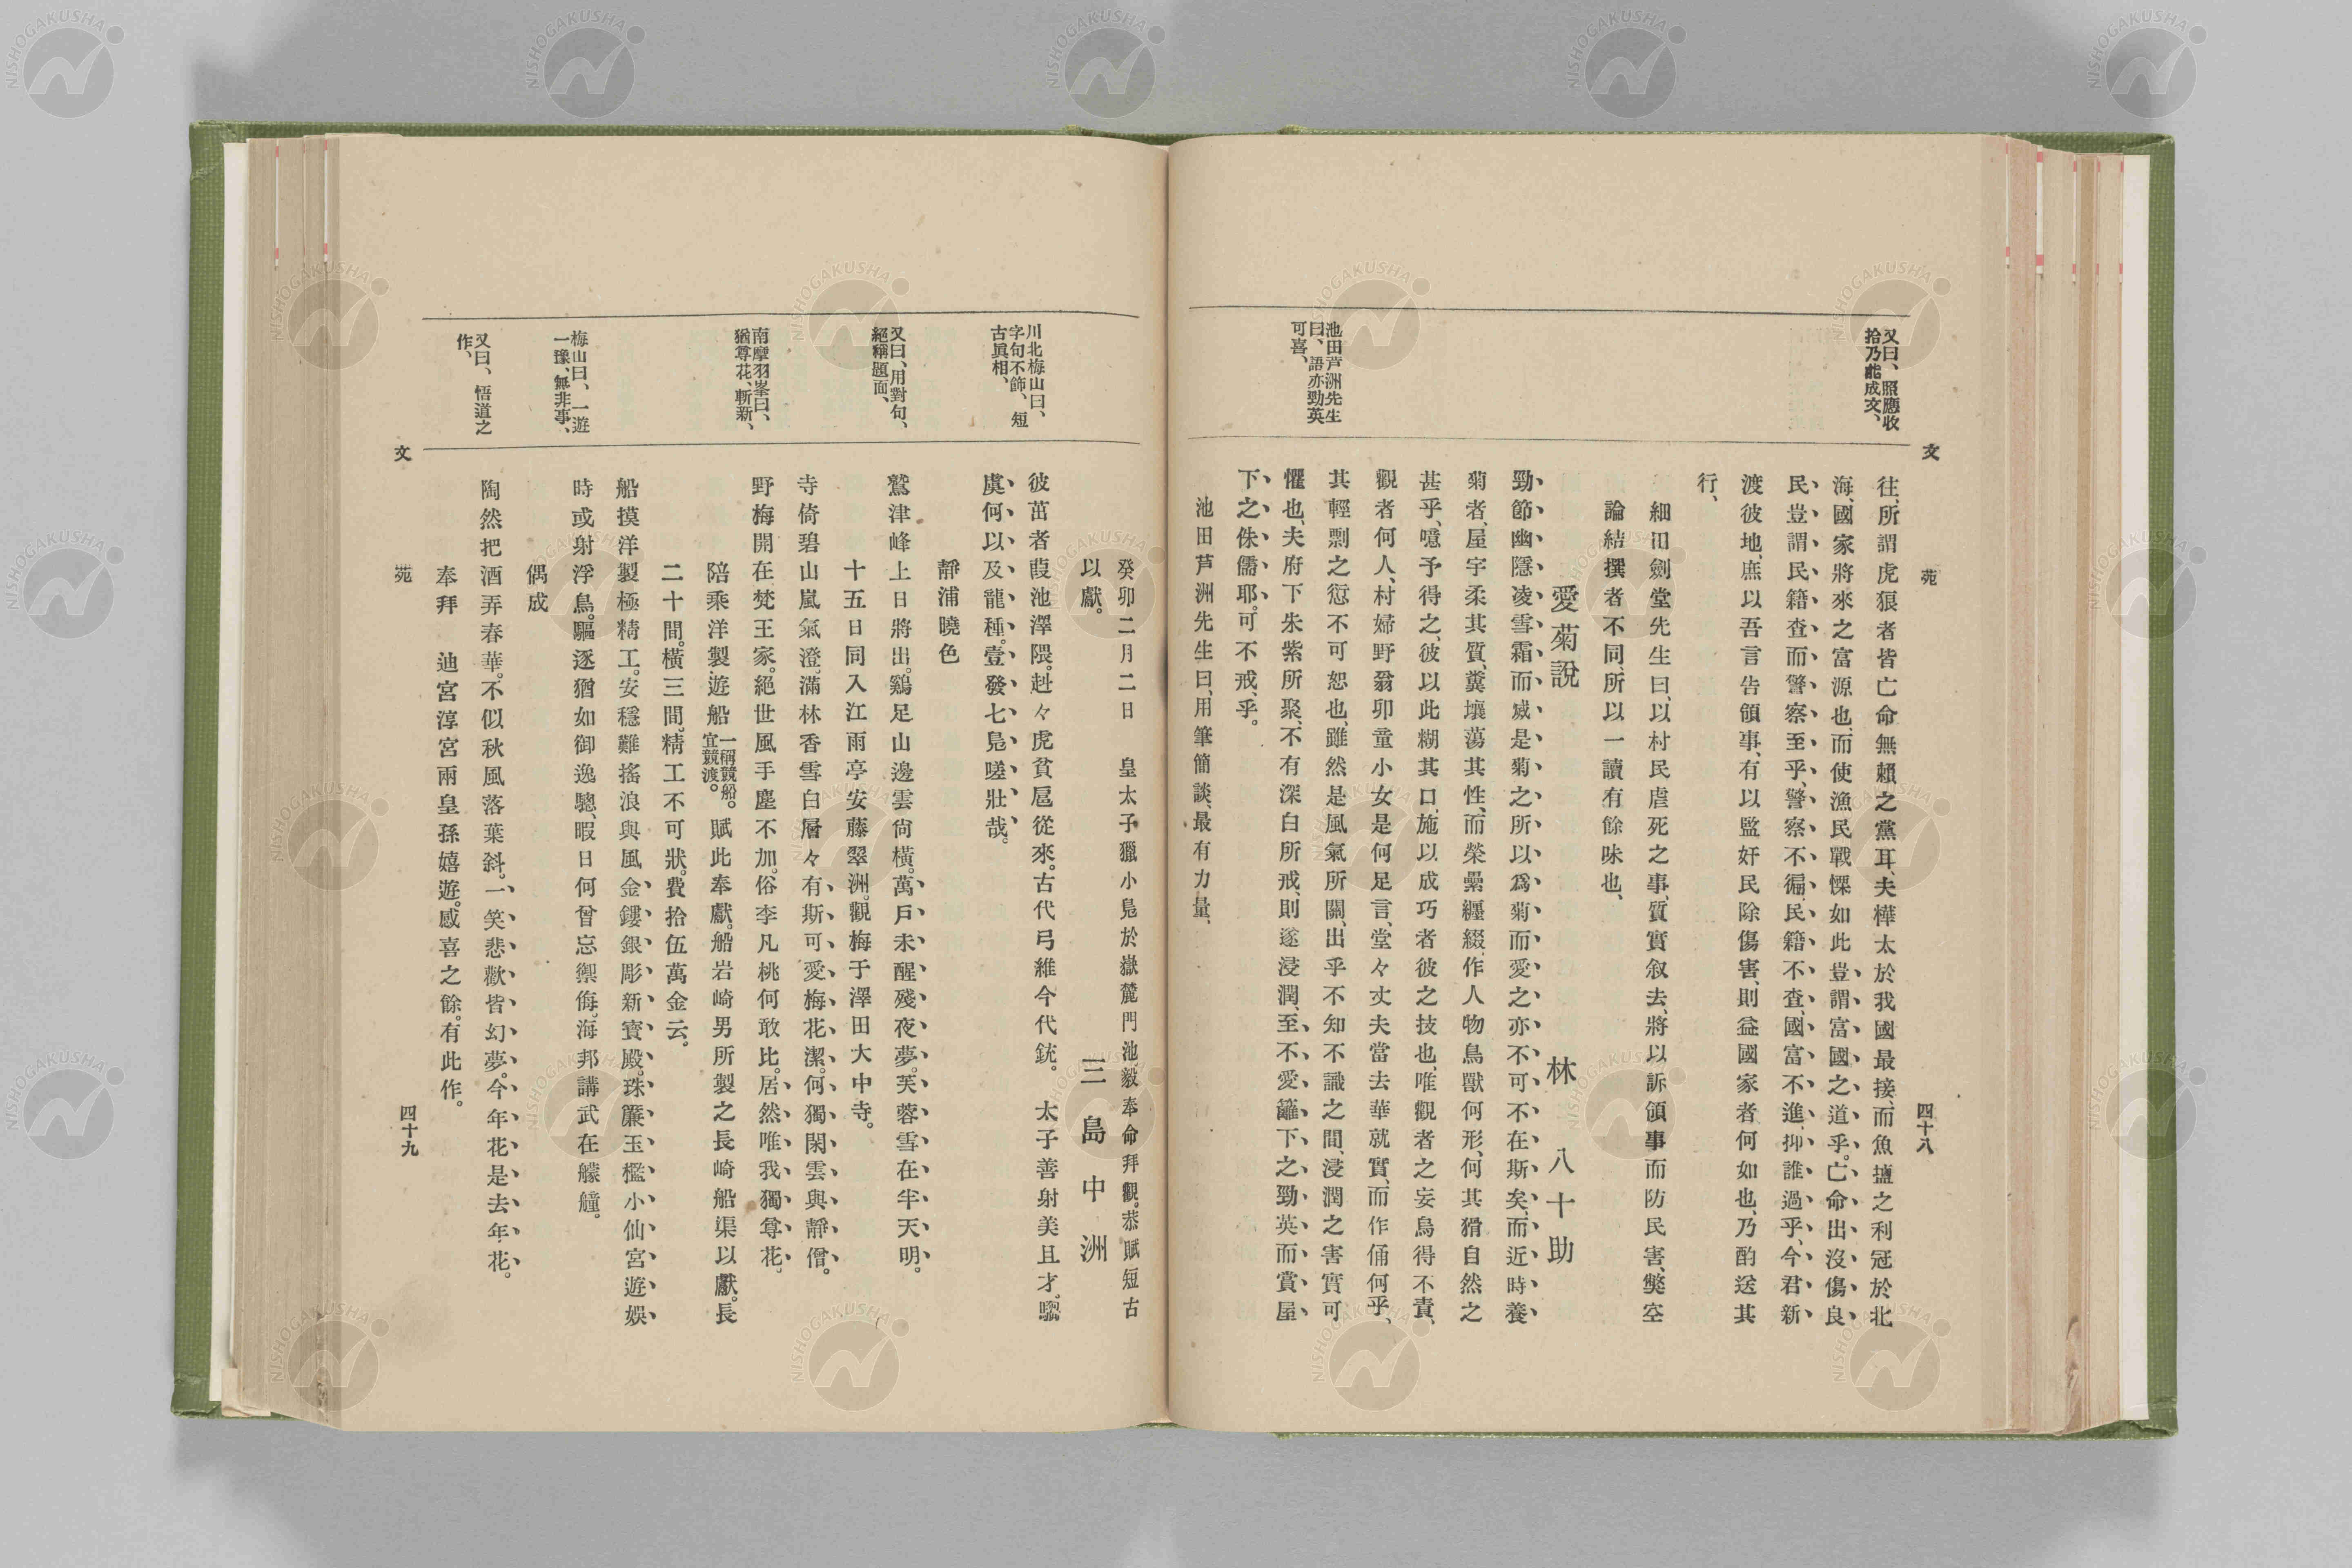 文
苑
四十八
又曰、照應收
拾乃能成文、
往、所謂虎狼者皆亡命無賴之黨耳、夫樺太於我國最接、而魚鹽之利冠於北
海、國家將來之富源也、而使漁民戰慄如此、豈謂富國之道乎。亡命出沒傷良
民、豈謂民籍査而警察至乎、警察不徧、民籍不査、國富不進、抑誰過乎、今君新
渡彼地、庶以吾言告領事、有以監奸民除傷害、則益國家者何如也、乃酌送其
行、
細田劍堂先生曰、以村民虐死之事、質實叙去、將以訴領事而防民害、獎空
論結撰者不同、所以一讀有餘味也、
愛菊說
林 八十助
勁節幽隱、凌雪霜而威、是菊之所以爲菊、而愛之亦不可不在斯矣、而近時養
菊者、屋宇柔其質、糞壤蕩其性、而榮纍纏綴、作人物鳥獸何形、何其猾自然之
甚乎、噫予得之、彼以此糊其口、施以成巧者彼之技也、唯觀者之妄烏得不責、
觀者何人、村婦野翁丱童小女是何足言、堂々丈夫當去華就實、而作俑何乎、
其輕剽之愆不可恕也、雖然是風氣所關、出乎不知不識之間、浸潤之害實可
懼也、夫府下朱紫所聚、不有深白所戒、則遂浸潤、至不愛籬下之勁英、而賞屋
下之侏儒耶。可不戒乎。
池田芦洲先生
曰、語亦勁英
可喜、
池田芦洲先生曰、用筆簡談、最有力量、
癸卯二月二日 皇太子獵小鳧於嶽麓門池、毅奉命拜觀。恭賦短古
以獻。
三島中洲
川北梅山曰、
字句不飾、短
古眞相、
彼茁者葭池澤隈。赳々虎賁扈從來。古代弓維今代銃。 太子善射美且才。騶
虞何以及龍種。壹發七鳧嗟壯哉。
靜浦曉色
又曰、用對句、
絕稱題面、
鷲津峰上日將出。鷄足山邊雲尙橫。萬戶未醒殘夜夢。芙蓉雪在半天明。
十五日同入江雨亭安藤翠洲。觀梅于澤田大中寺。
寺倚碧山嵐氣澄。滿林香雪白層々。有斯可愛梅花潔。何獨閑雲與靜僧。
南摩羽峯曰、
猶尊花、斬新、
野梅開在梵王家。絕世風手塵不加。俗李凡桃何敢比。居然唯我獨尊花。
陪乘洋製遊船一稱競船。宜競渡。賦此奉獻。船岩崎男所製之長崎船渠以獻。長
二十間。橫三間。精工不可狀。費拾伍萬金云。
梅山曰、一遊
一豫、無非事、
船摸洋製極精工。安穩難搖浪與風。金鏤銀彫新寶殿。珠簾玉檻小仙宮。遊娛
時或射浮鳥。驅逐猶如御逸驄。暇日何曾忘禦侮。海邦講武在艨艟。
偶成
又曰、悟道之
作、
陶然把酒弄春華。不似秋風落葉斜。一笑悲歡皆幻夢。今年花是去年花。
奉拜 迪宮淳宮兩皇孫嬉遊。感喜之餘。有此作。
文
苑
四十九
NISHOGAKUSHA